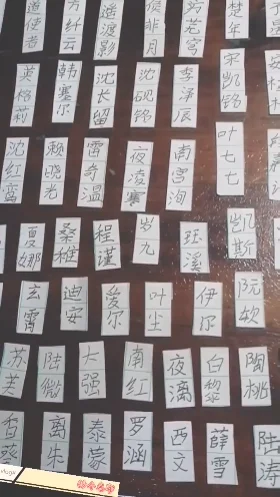 道使者 方纤云 遥渡影 侯非月 巧芜宫 楚年
英格莉 韩塞尔 沈长留 沈砚铭 李泽辰 宋凯铭
沈红蛮 赖晓光 雷奇温 夜凌寒 南宫洵 叶七七
夏娜 桑椎 程谨 岁九 珏溪 凯斯
玄霄 迪安 爱尔 叶尘 伊尔 阮软
苏圭 陆微 大强 南红 夜漓 白黎 陶桃
离朱 泰蒙 罗涵 西文 薛雪